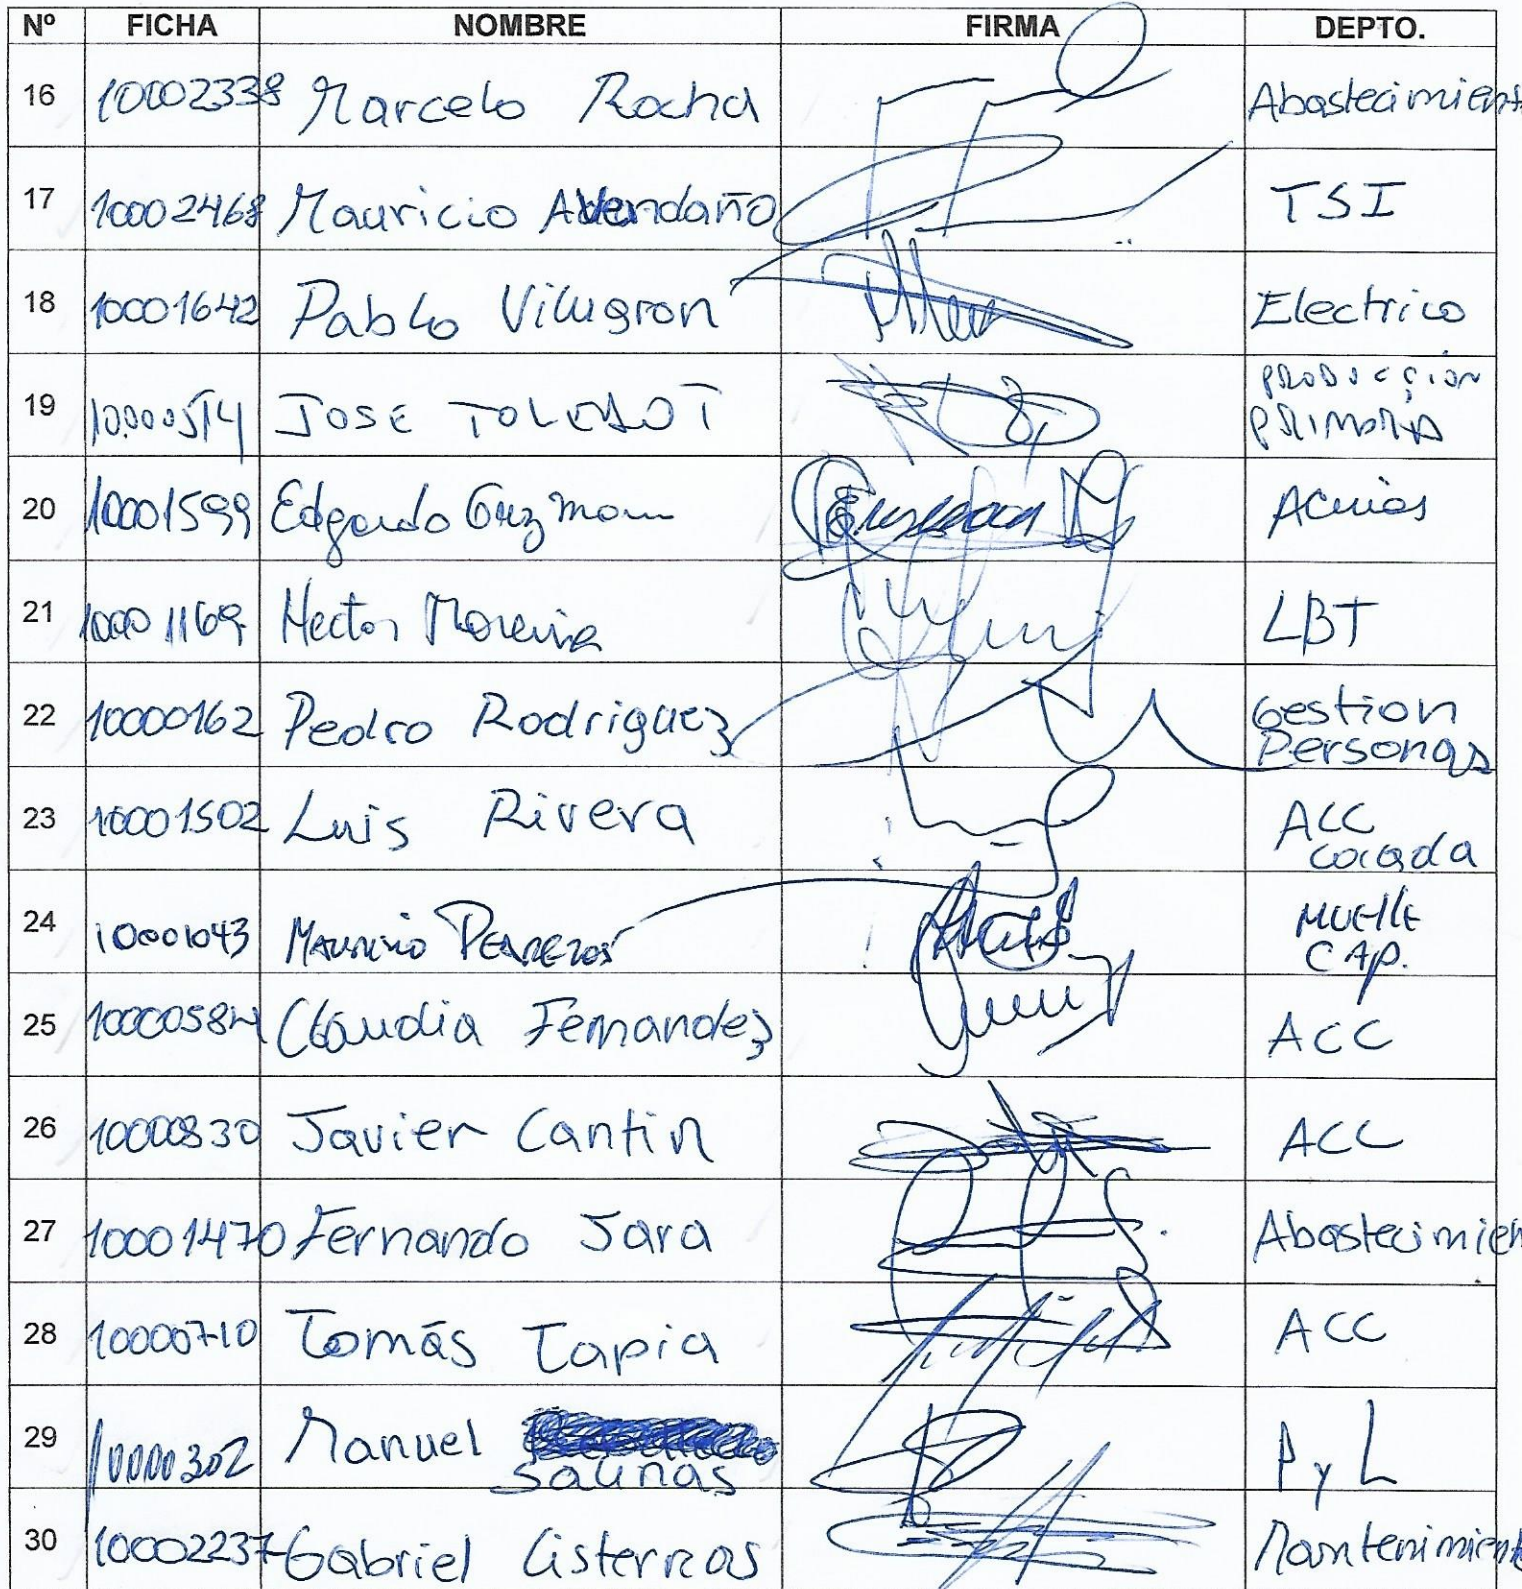 Nº FICHA NOMBRE FIRMA DEPTO.
16 10002338 Marcelo Rocha Abastecimient
17 10002468 Mauricio Avendaño TSI
18 10001642 Pablo Vilugron Electrico
19 10000514 JOSE TOLEDO T PRODUCCION
PRIMARIA
20 10001599 Edgardo Guzman Acerias
21 10001169 Hector Moreira LBT
22 10000162 Pedro Rodriguez Gestion
Personas
23 10001502 Luis Rivera ACC
colada
24 10001043 MAURICIO MUElle
CAP.
25 10000584 Claudia Fernandez ACC
26 10000830 Javier Cantin ACC
27 10001470 Fernando Jara Abastecimien
28 10000710 Tomás Tapia ACC
29 10000302 Manuel P y L
Salinas
30 10002237 Gabriel Cisternas Mantenimiento